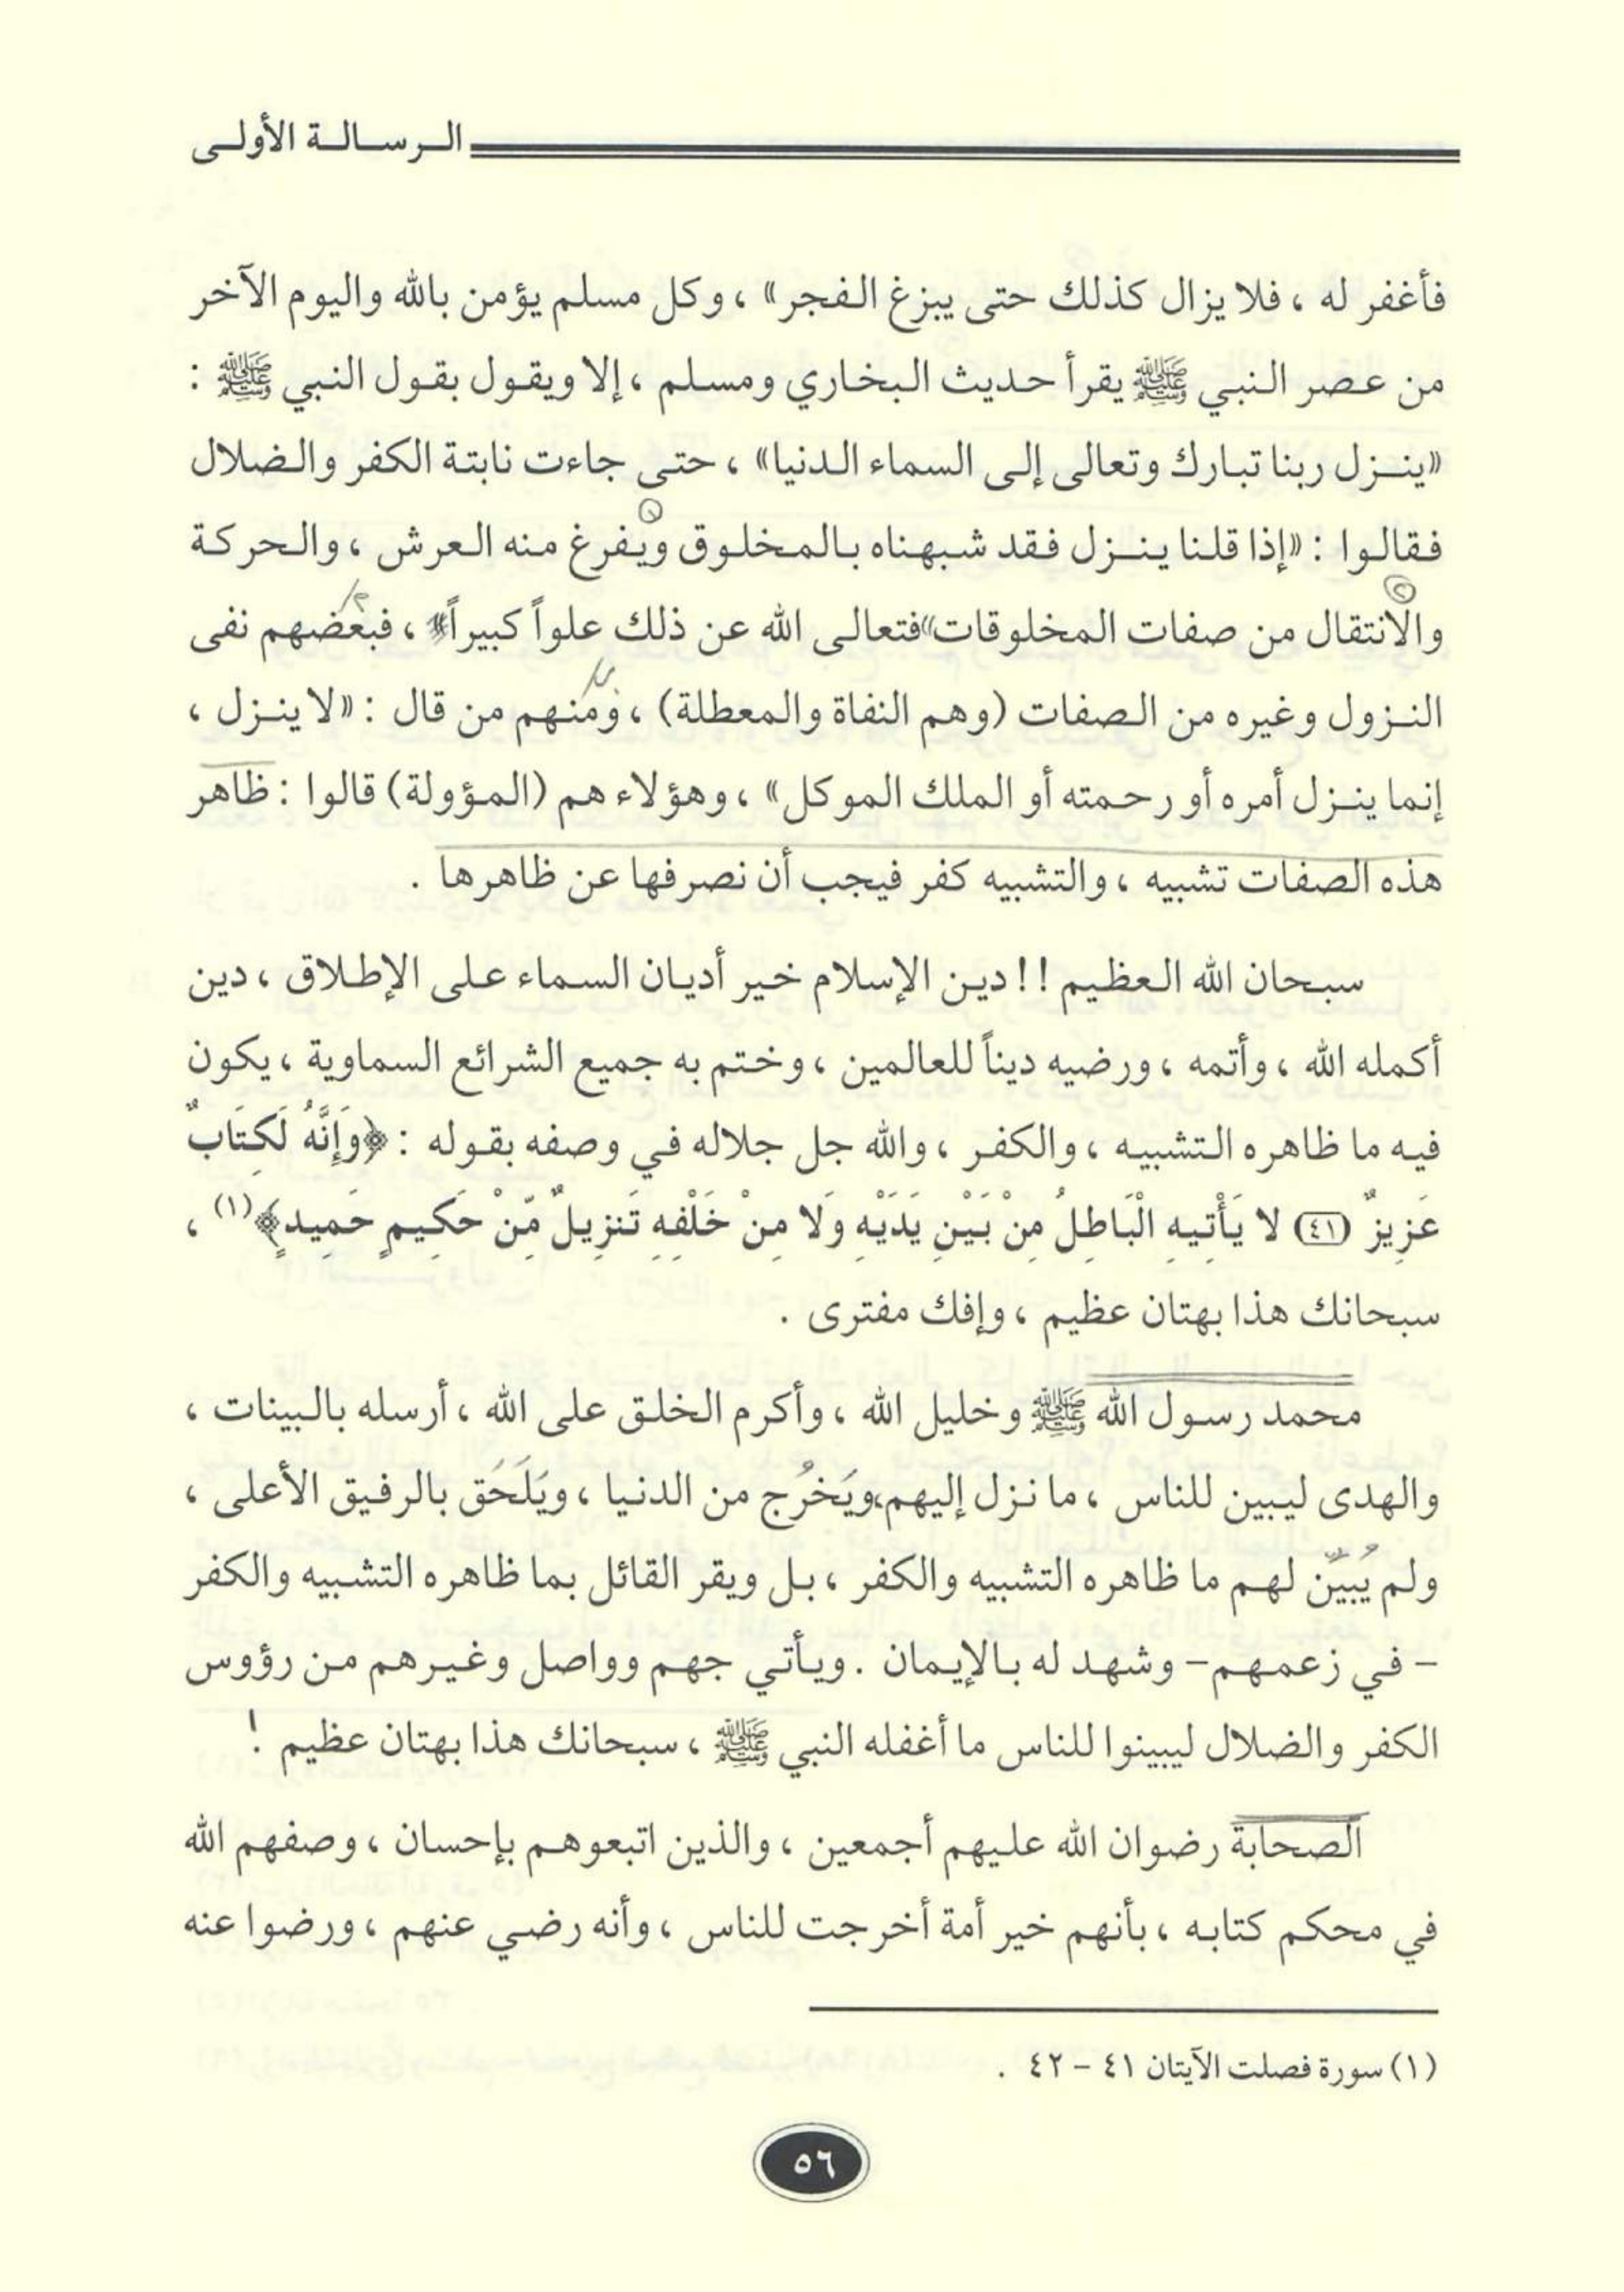 الرسالة الأولى
فأغفر له ، فلا يزال كذلك حتى يبزغ الفجر» ، وكل مسلم يؤمن بالله واليوم الآخر
من عصر النبي ﷺ يقرأ حديث البخاري ومسلم ، إلا ويقول بقول النبي ﷺ :
«ينزل ربنا تبارك وتعالى إلى السماء الدنيا» ، حتى جاءت نابتة الكفر والضلال
فقالوا : «إذا قلنا ينزل فقد شبهناه بالمخلوق ويفرغ منه العرش ، والحركة
والانتقال من صفات المخلوقات» فتعالى الله عن ذلك علواً كبيراً» ، فبعضهم نفى
النزول وغيره من الصفات (وهم النفاة والمعطلة) ، ومنهم من قال : «لا ينزل ،
إنما ينزل أمره أو رحمته أو الملك الموكل» ، وهؤلاء هم (المؤولة) قالوا : ظاهر
هذه الصفات تشبيه ، والتشبيه كفر فيجب أن نصرفها عن ظاهرها .
سبحان الله العظيم !! دين الإسلام خير أديان السماء على الإطلاق ، دين
أكمله الله ، وأتمه ، ورضيه ديناً للعالمين ، وختم به جميع الشرائع السماوية ، يكون
فيه ما ظاهره التشبيه ، والكفر ، والله جل جلاله في وصفه بقوله : ﴿وَإِنَّهُ لَكِتَابٌ
عَزِيزٌ (٤١) لا يَأْتِيهِ الْبَاطِلُ مِنْ بَيْنِ يَدَيْهِ وَلا مِنْ خَلْفِهِ تَنزِيلٌ مِّنْ حَكِيمٍ حَمِيدٍ﴾(١) ،
سبحانك هذا بهتان عظيم ، وإفك مفترى .
محمد رسول الله ﷺ وخليل الله ، وأكرم الخلق على الله ، أرسله بالبينات ،
والهدى ليبين للناس ، ما نزل إليهم، ويَخرُج من الدنيا ، ويَلَحَق بالرفيق الأعلى ،
ولم يُبيّن لهم ما ظاهره التشبيه والكفر ، بل ويقر القائل بما ظاهره التشبيه والكفر
- في زعمهم - وشهد له بالإيمان . ويأتي جهم وواصل وغيرهم من رؤوس
الكفر والضلال ليبينوا للناس ما أغفله النبي ﷺ ، سبحانك هذا بهتان عظيم !
الصحابة رضوان الله عليهم أجمعين ، والذين اتبعوهم بإحسان ، وصفهم الله
في محكم كتابه ، بأنهم خير أمة أخرجت للناس ، وأنه رضي عنهم ، ورضوا عنه
(١) سورة فصلت الآيتان ٤١ - ٤٢ .
٥٦